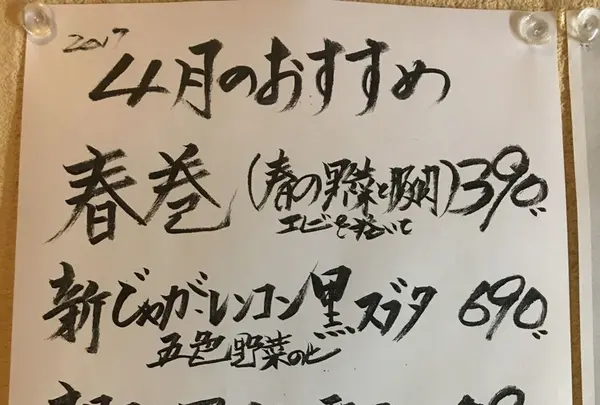 2017
4月のおすすめ
春巻(春の野菜と豚肉)390
エビを巻いて
新じゃが・レンコン黒スブタ 690
五色野菜の